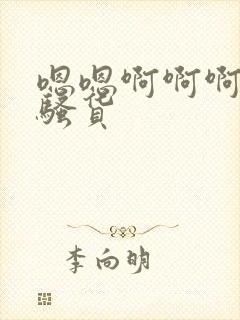 嗯嗯啊啊啊
骚货
李向明